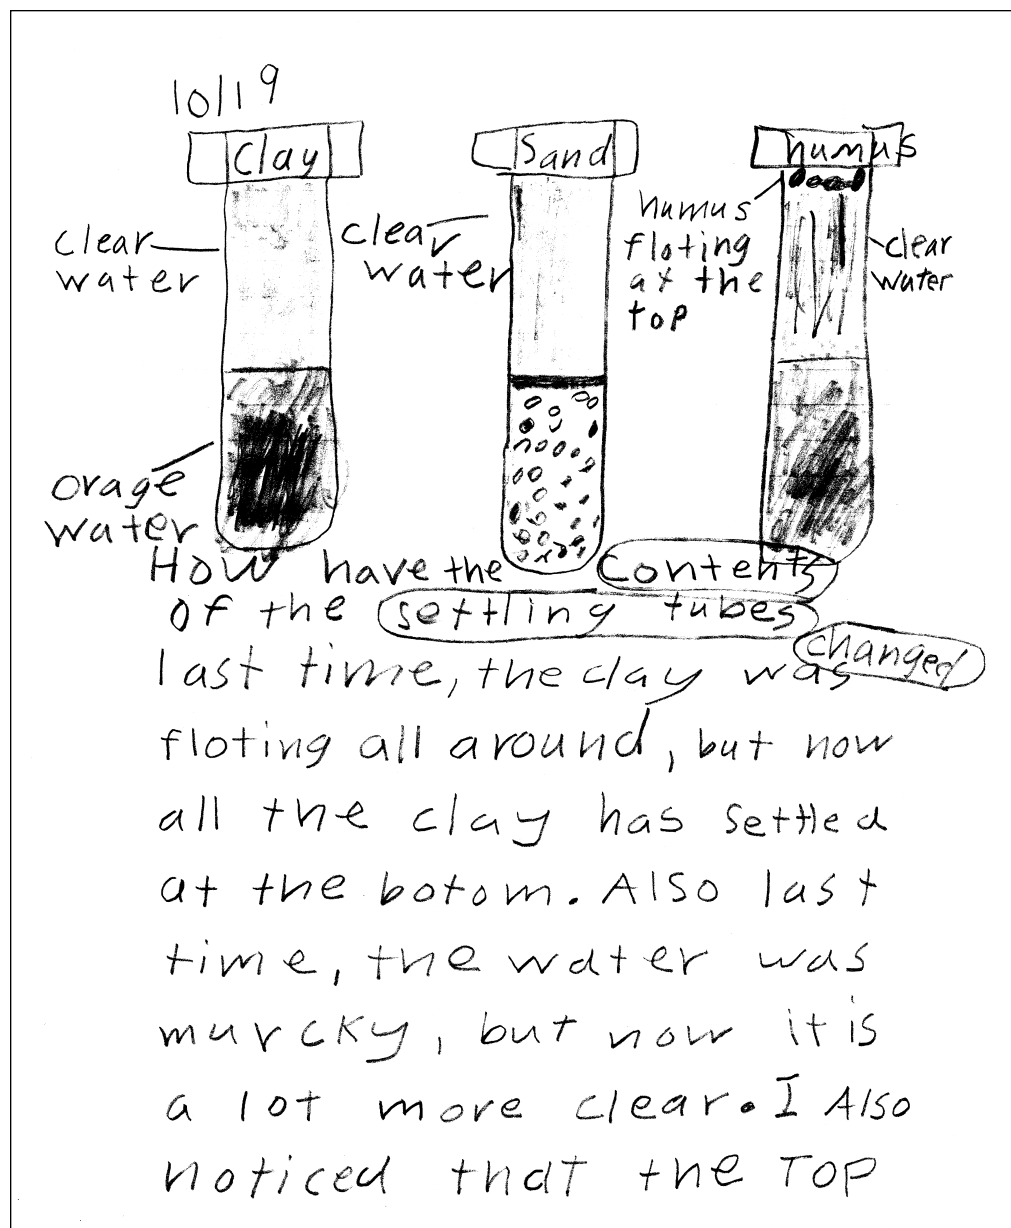 10/19
Clay
Sand
humus
clear
water
clear
water
humus
floting
at the
top
clear
water
orage
water
How have the contents
of the settling tubes
changed
last time, the clay was
floting all around, but now
all the clay has settled
at the botom. Also last
time, the water was
murcky, but now it is
a lot more clear. I Also
noticed that the Top